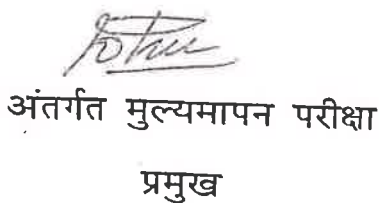 अंतर्गत मुल्यमापन परीक्षा
प्रमुख